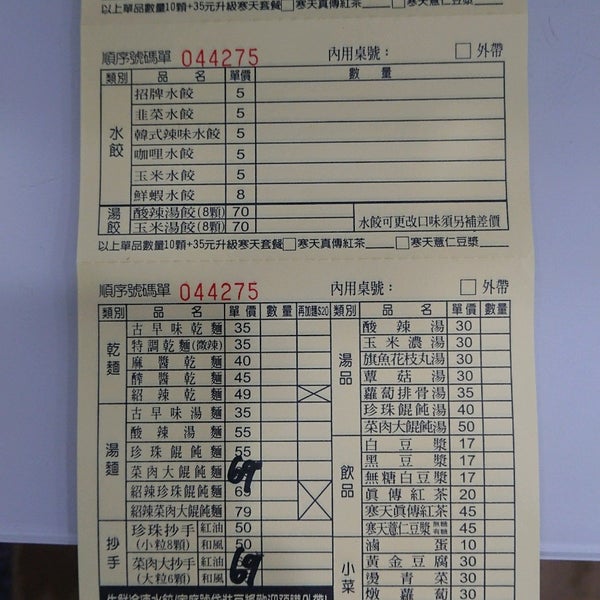 以上單品數量10顆+35元升級寒天套餐□寒天真傳紅茶____□寒天薏仁豆漿____
順序號碼單 044275 內用桌號： □ 外帶
類別 品名 單價 數量
水餃
招牌水餃 5
韭菜水餃 5
韓式辣味水餃 5
咖哩水餃 5
玉米水餃 5
鮮蝦水餃 8
湯餃
酸辣湯餃(8顆) 70
玉米湯餃(8顆) 70
水餃可更改口味須另補差價
以上單品數量10顆+35元升級寒天套餐□寒天真傳紅茶____□寒天薏仁豆漿____
順序號碼單 044275 內用桌號： □ 外帶
類別 品名 單價 數量 再加麵$20 類別 品名 單價 數量
乾麵
古早味乾麵 35
特調乾麵(微辣) 35
麻醬乾麵 40
酢醬乾麵 45
紹辣乾麵 49
湯麵
古早味湯麵 35
酸辣湯麵 55
珍珠餛飩麵 55
菜肉大餛飩麵 69
紹辣珍珠餛飩麵 69
紹辣菜肉大餛飩麵 79
抄手
珍珠抄手 紅油 50
(小粒8顆) 和風 50
菜肉大抄手 紅油 69
(大粒6顆) 和風
湯品
酸辣湯 30
玉米濃湯 30
旗魚花枝丸湯 30
蕈菇湯 30
蘿蔔排骨湯 35
珍珠餛飩湯 40
菜肉大餛飩湯 50
飲品
白豆漿 17
黑豆漿 17
無糖白豆漿 17
真傳紅茶 20
寒天真傳紅茶 45
寒天薏仁豆漿 無糖 有糖 45
小菜
滷蛋 10
黃金豆腐 30
燙青菜 30
燉蘿蔔 30